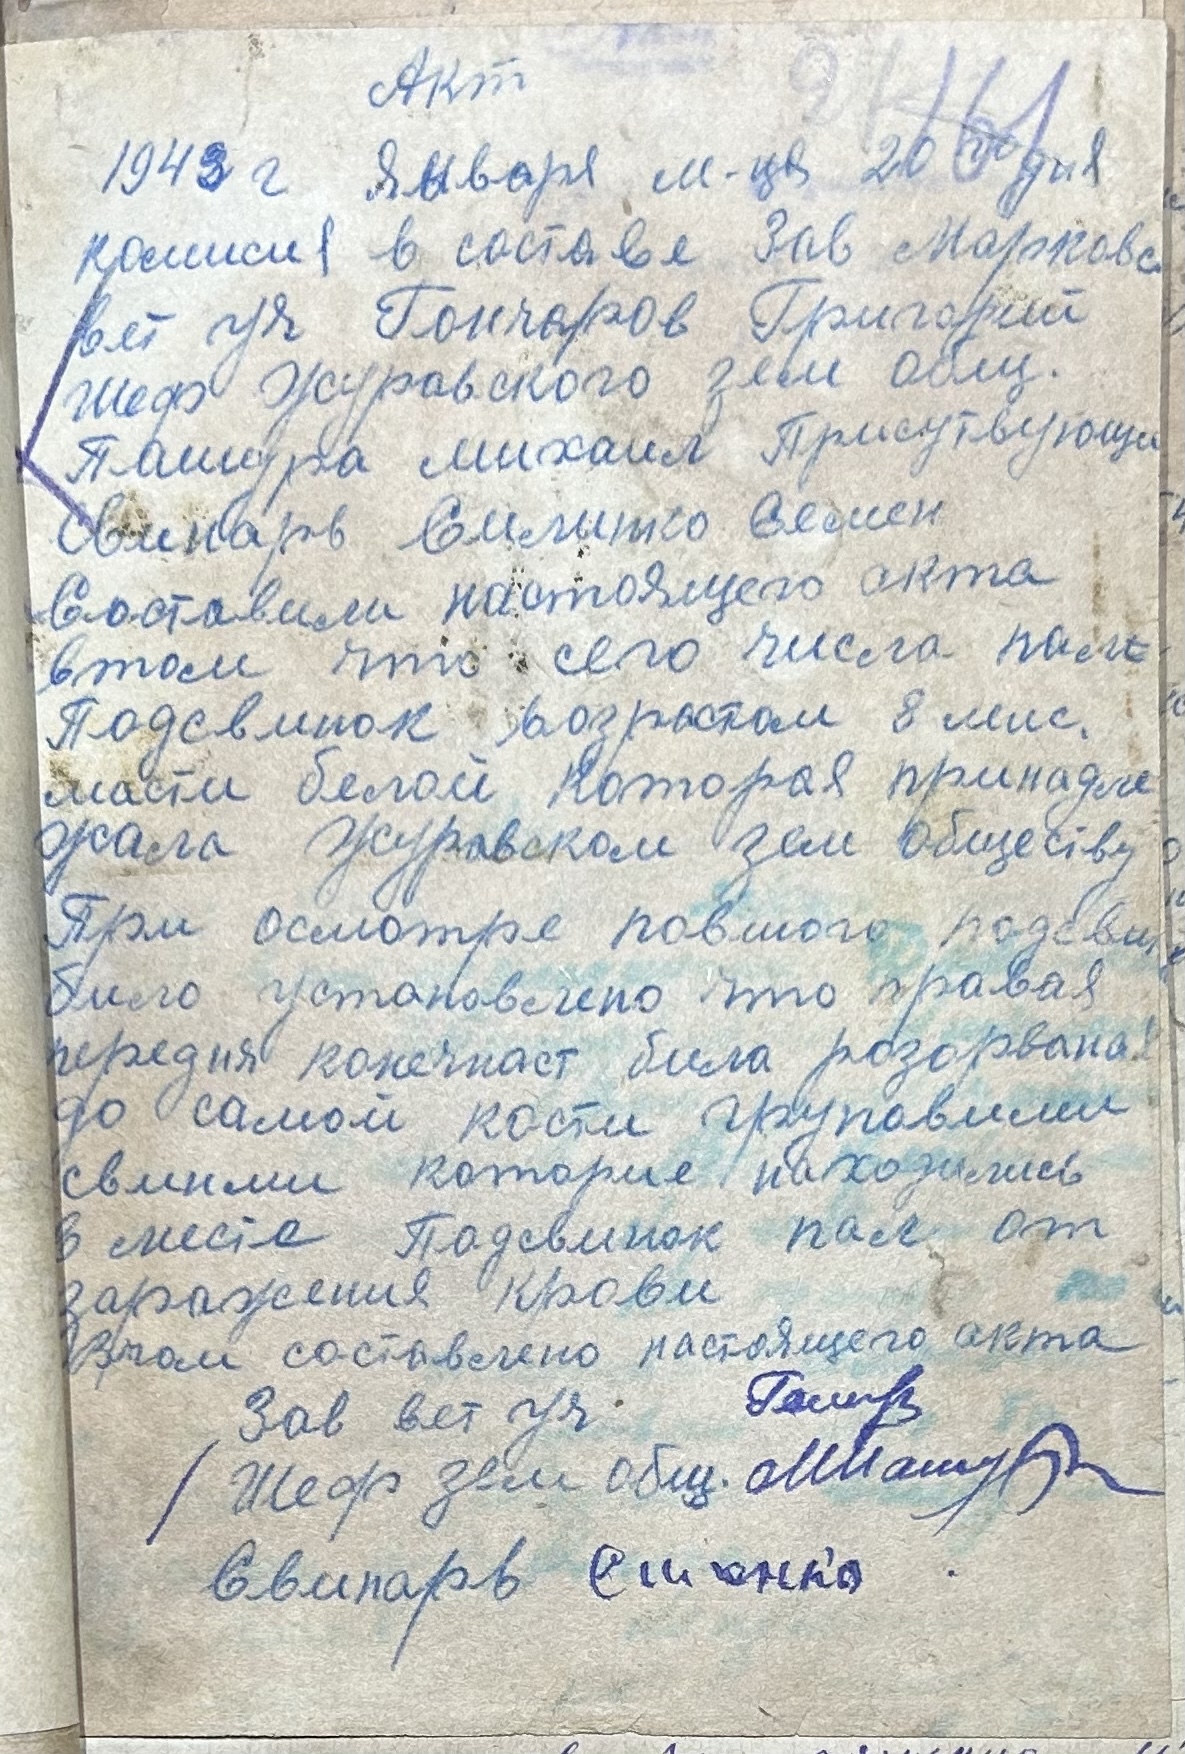 Акт
1943 г января м-ця 20 го дня
комисия в составе Зав Марковс
вет уч Гончаров Григорий
Шеф Журавского зем общ.
Пашура михаил Присутвующи
Свинарь Силынко Семен
Составили настоящего акта
втом что сего числа пал
Подсвинок возрастом 8 мис.
масти белой Которая принадле
жала Журавском зем обществу
При осмотре повшого подсвин
било установлено что правая
передня конечност била розорвана
до самой кости груповими
свинми которие находились
в месте Подсвинок пал от
заражения крови
Втом составлено настоящего акта
Зав вет уч
Шеф зем общ. МПашура
Свинарь